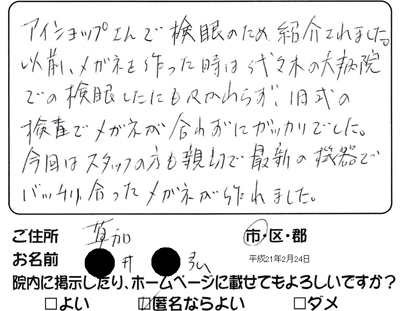 アイショップさんで検眼のため紹介されました。
以前、メガネを作った時は代々木の大病院
での検眼したにもかかわらず、旧式の
検査でメガネが合わずにガッカリでした。
今回はスタッフの方も親切で最新の機器で
バッチリ合ったメガネが作れました。
ご住所 草加 市・区・郡
お名前 井 弘 平成21年2月24日
院内に掲示したり、ホームページに載せてもよろしいですか?
□よい ☑匿名ならよい □ダメ